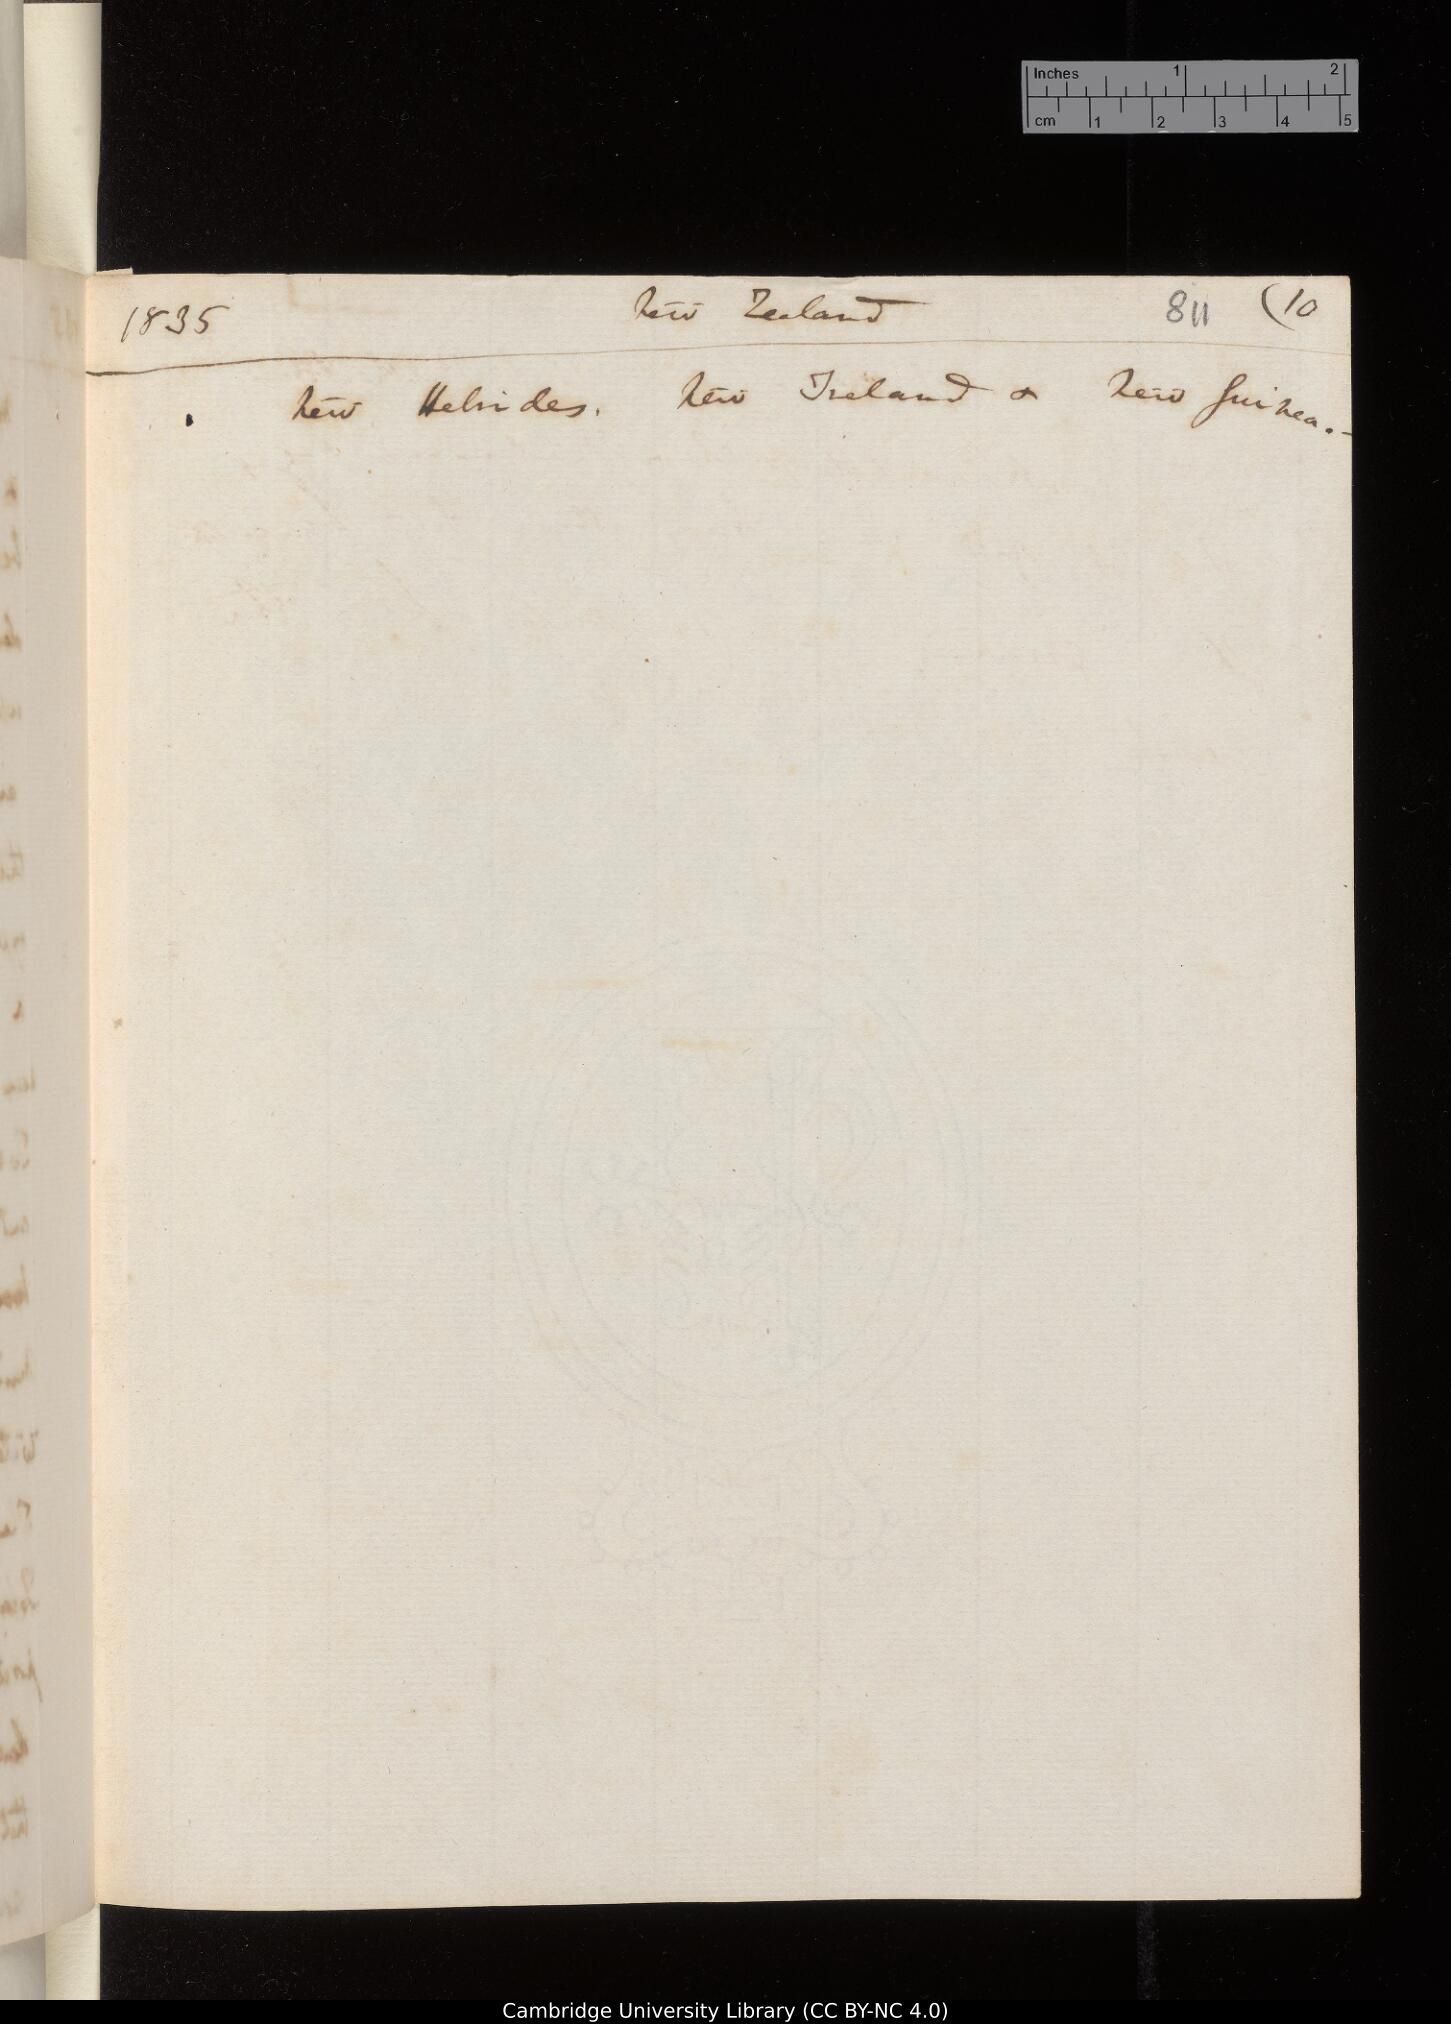 Inches 1 2
cm 1 2 3 4 5
1835 New Zealand 811 (10
New Hebrides. New Ireland & New Guinea.—
Cambridge University Library (CC BY-NC 4.0)